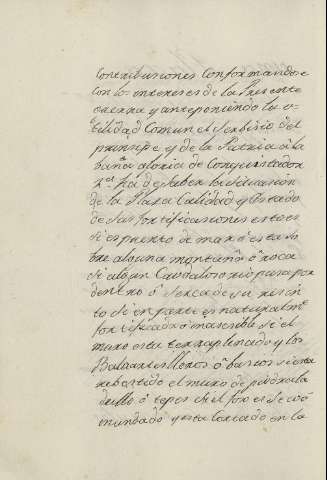 Contribusiones Conformandose
con los intereses de la Presente
Guerra y anteponiendo la u-
tilidad Comun el serbisio del
prinsipe y de la Patria a la
bana gloria de Conquistador
ha de saber la situasion
de la Plaza Calidad y estado
de sus fortificasiones esto es
si es puerto de mar o esta so
bre alguna montaña o roca
si algun Caudaloso rio pasa por
dentro o serca de su resin
to si en parte es naturalmte
fortificada o inacesible si el
muro esta terraplenado y los
Baluartes llenos o basios si esta
rebestido el muro de piedra la
drillo o tepes si el foso es
inundado y esta cortado en la